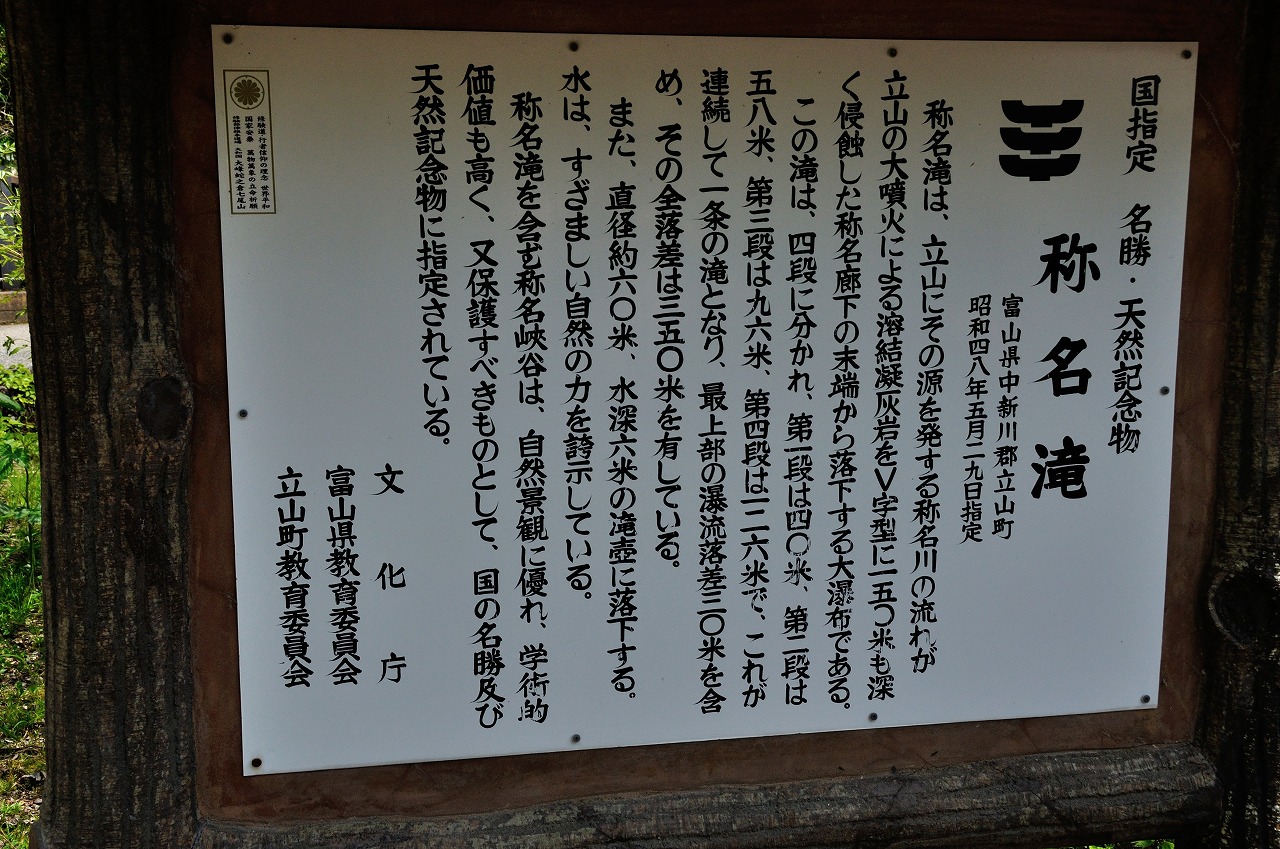 国指定 名勝・天然記念物
称名滝
富山県中新川郡立山町
昭和四八年五月二九日指定
称名滝は、立山にその源を発する称名川の流れが
立山の大噴火による溶結凝灰岩をV字型に一五〇米も深
く侵蝕した称名廊下の末端から落下する大瀑布である。
この滝は、四段に分かれ、第一段は四〇米、第二段は
五八米、第三段は九六米、第四段は一二六米で、これが
連続して一条の滝となり、最上部の瀑流落差三〇米を含
め、その全落差は三五〇米を有している。
また、直径約六〇米、水深六米の滝壺に落下する。
水は、すざましい自然の力を誇示している。
称名滝を含む称名峡谷は、自然景観に優れ、学術的
価値も高く、又保護すべきものとして、国の名勝及び
天然記念物に指定されている。
文化庁
富山県教育委員会
立山町教育委員会
修験道 行者信仰の理念 世界平和
国家安泰 萬物萬象の立命祈願
大峰蛇之倉七尾山